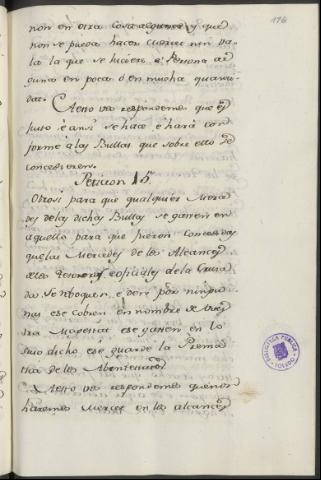 176
non en otra cosa alguna, y que
non se pueda hacer merced nin va-
la la que se hiciere a Persona al-
guna en poca ò en mucha quanti-
dad. A esto vos respondemos que es
justo è ansi se hace è harà con-
forme à las Bullas que sobre ello se
concedieren.
Peticion 15.
Otrosi para que qualquier Mara-
des de las dichas Bullas se gasten en
aquello para que fueron concedidas
que las Mercedes de los Alcances
de los Tesoreros è oficiales de la Cruza-
da. Se reboquen, e den por ningu-
nas è se cobren en nombre de vues-
tra Magestad è se gasten en lo
suso dicho, è se guarde la Prema-
tica de los Abintestatos
A esto vos respondemos que nos
haremos Merced en los alcances
BIBLIOTECA PUBLICA
TOLEDO